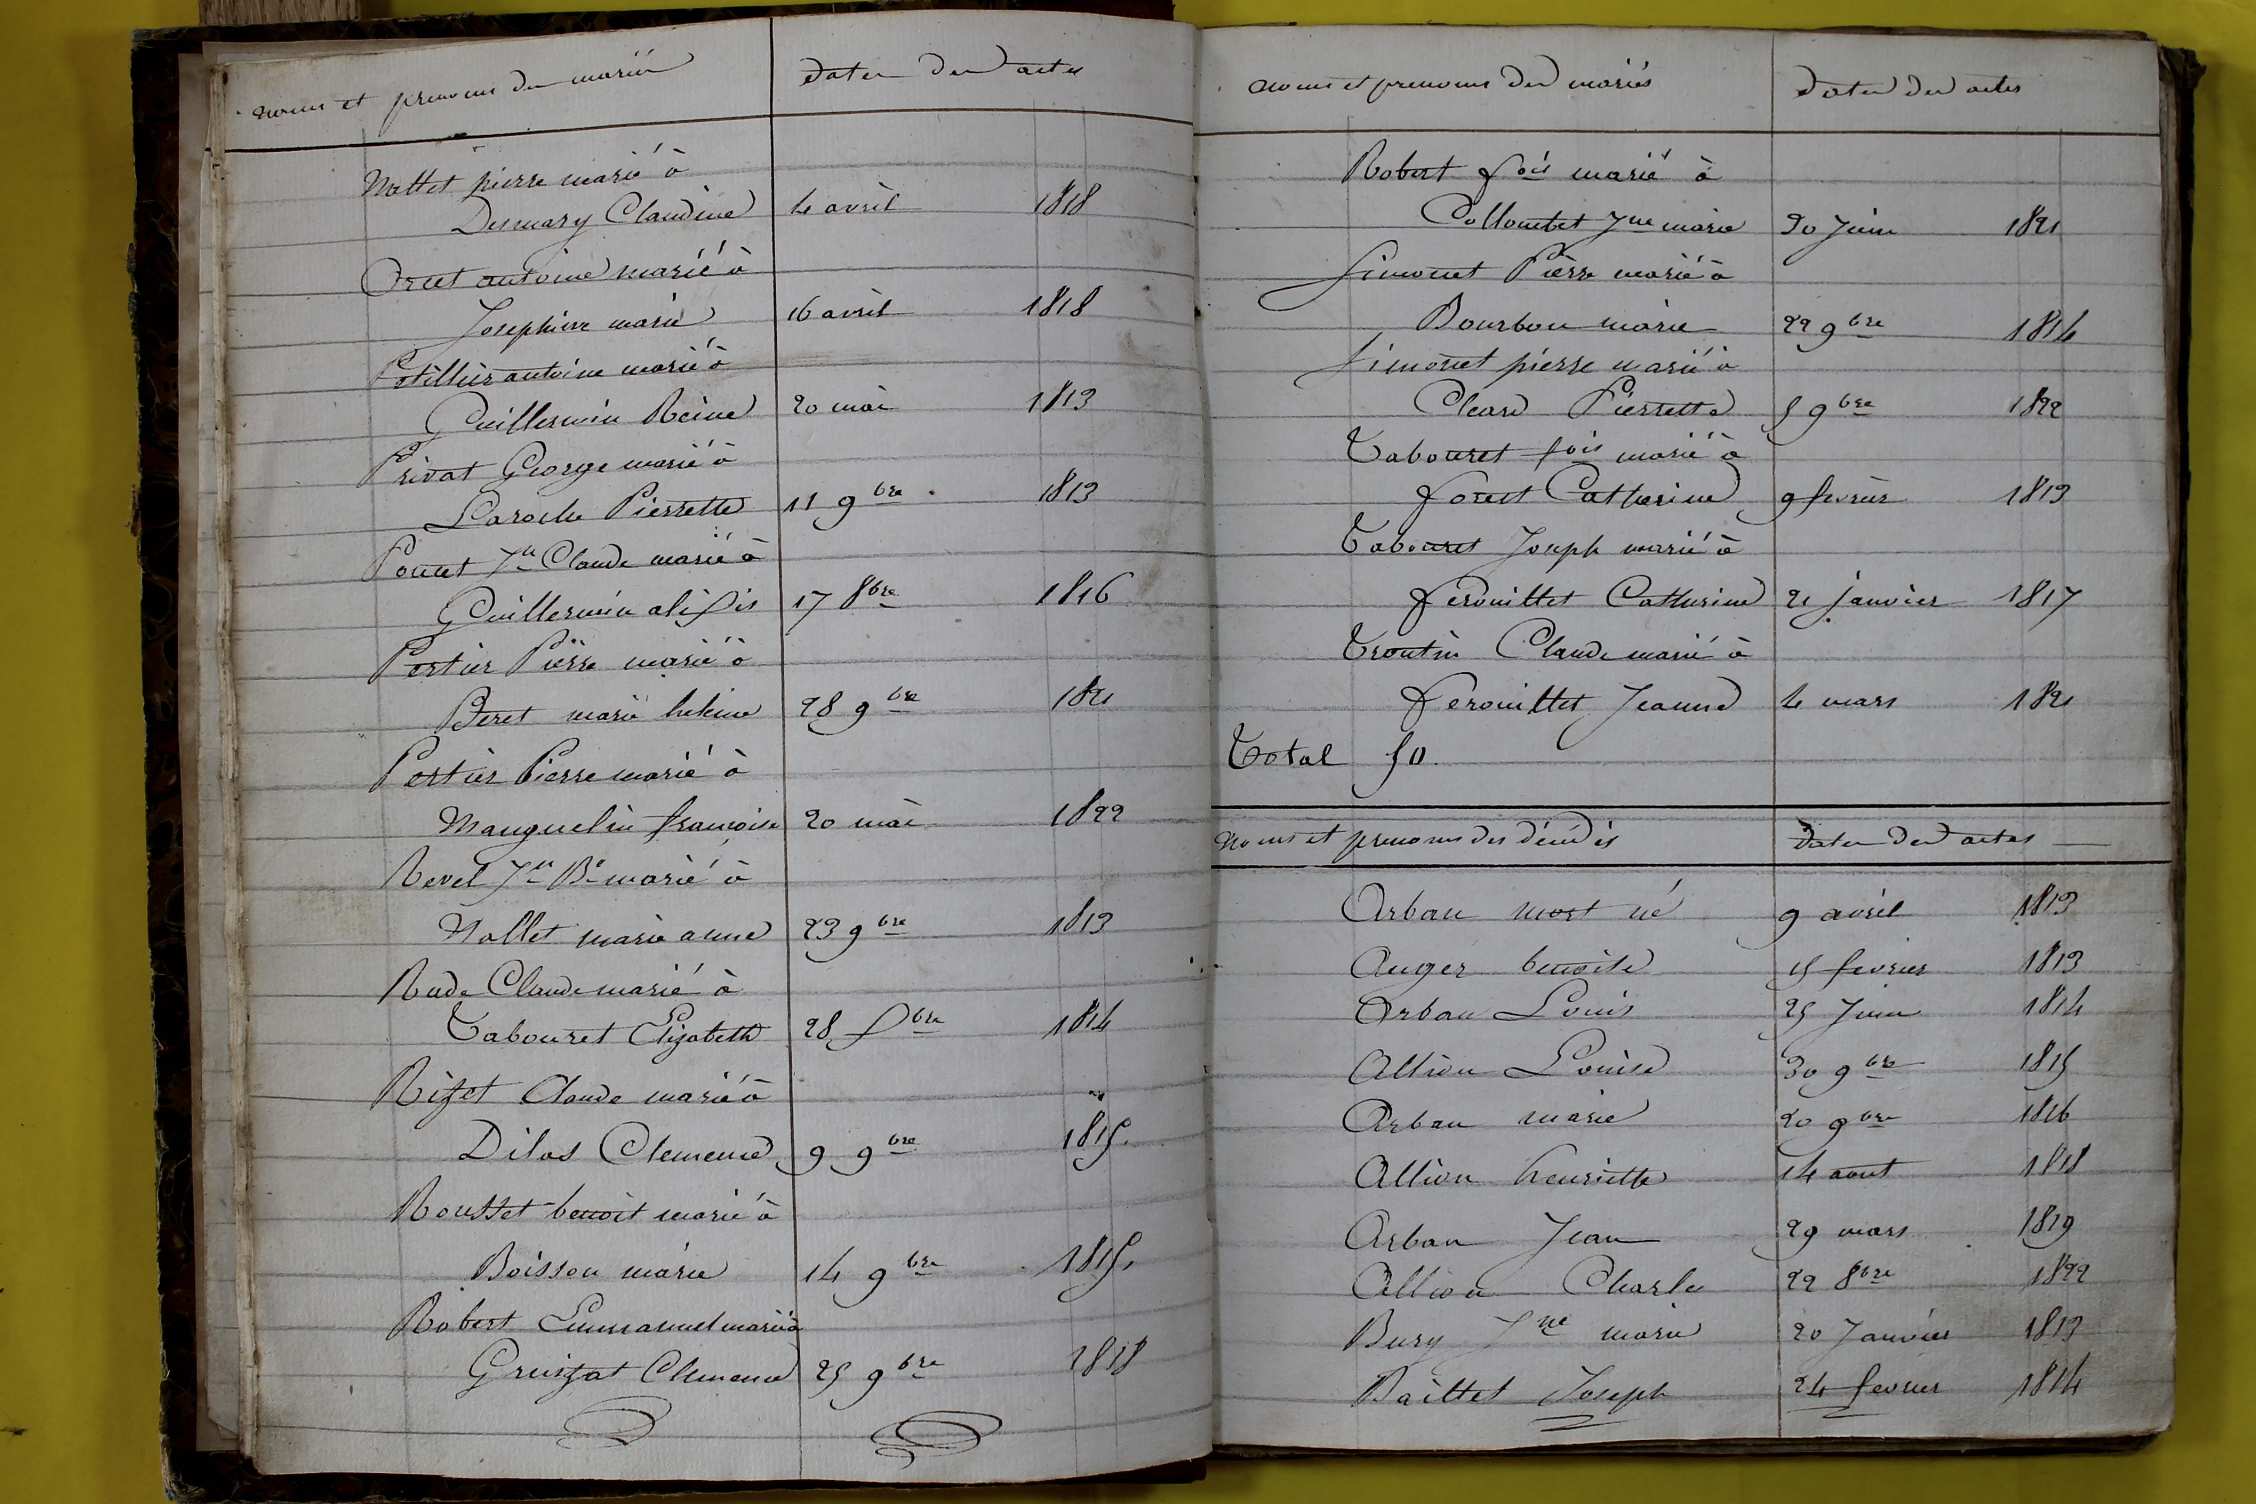 noms et prenoms des mariés
dates des actes
Nallet pierre marié à
Desmary Claudine 4 avril 1818
Orcet antoine marié à
Josephine marie 16 avril 1818
Potillier antoine marié à
Guillermin Reine 20 mai 1813
Privat George marié à
Laroche Pierrette 11 9bre 1813
Poncet Jn Claude marié à
Guillermin 17 8bre 1816
Portier Pierre marié à
Beret marie 28 9bre 1821
Portier Pierre marié à
Manguelin françoise 20 mai 1822
Revel Jn Bte marié à
Nallet marie anne 23 9bre 1813
Rude Claude marié à
Tabouret Elizabeth 28 1814
Rizet Claude marié à
Dilas Clemence 9 9bre 1815
Rousset benoit marié à
Boisson marie 14 9bre 1815
Robert Emmanuel marié à
Greuzat Clemence 25 9bre 1818
noms et prenoms des mariés
dates des actes
Robert fois marié à
Colloubet Jne marie 30 Juin 1821
Simonet Pierre marié à
Bourbon marie 22 9bre 1814
Simonet pierre marié à
Cleard Pierrette 5 9bre 1822
Tabouret fois marié à
forest Catherine 9 fevrier 1813
Tabouret Joseph marié à
ferouillet Catherine 21 janvier 1817
Troutin Claude marié à
ferouillet Jeanne 4 mars 1821
Total 50.
Noms et prenoms des décédés
dates des actes
Arban mort né 9 avril 1813
Auger benoite 15 fevrier 1813
Arban Louis 25 Juin 1814
Allion Louise 30 9bre 1815
Arban marie 20 9bre 1816
Allion henriette 14 aout 1818
Arban Jean 29 mars 1819
Allion Charles 22 8bre 1822
Bury Jne marie 20 Janvier 1813
Baillet Joseph 24 fevrier 1814